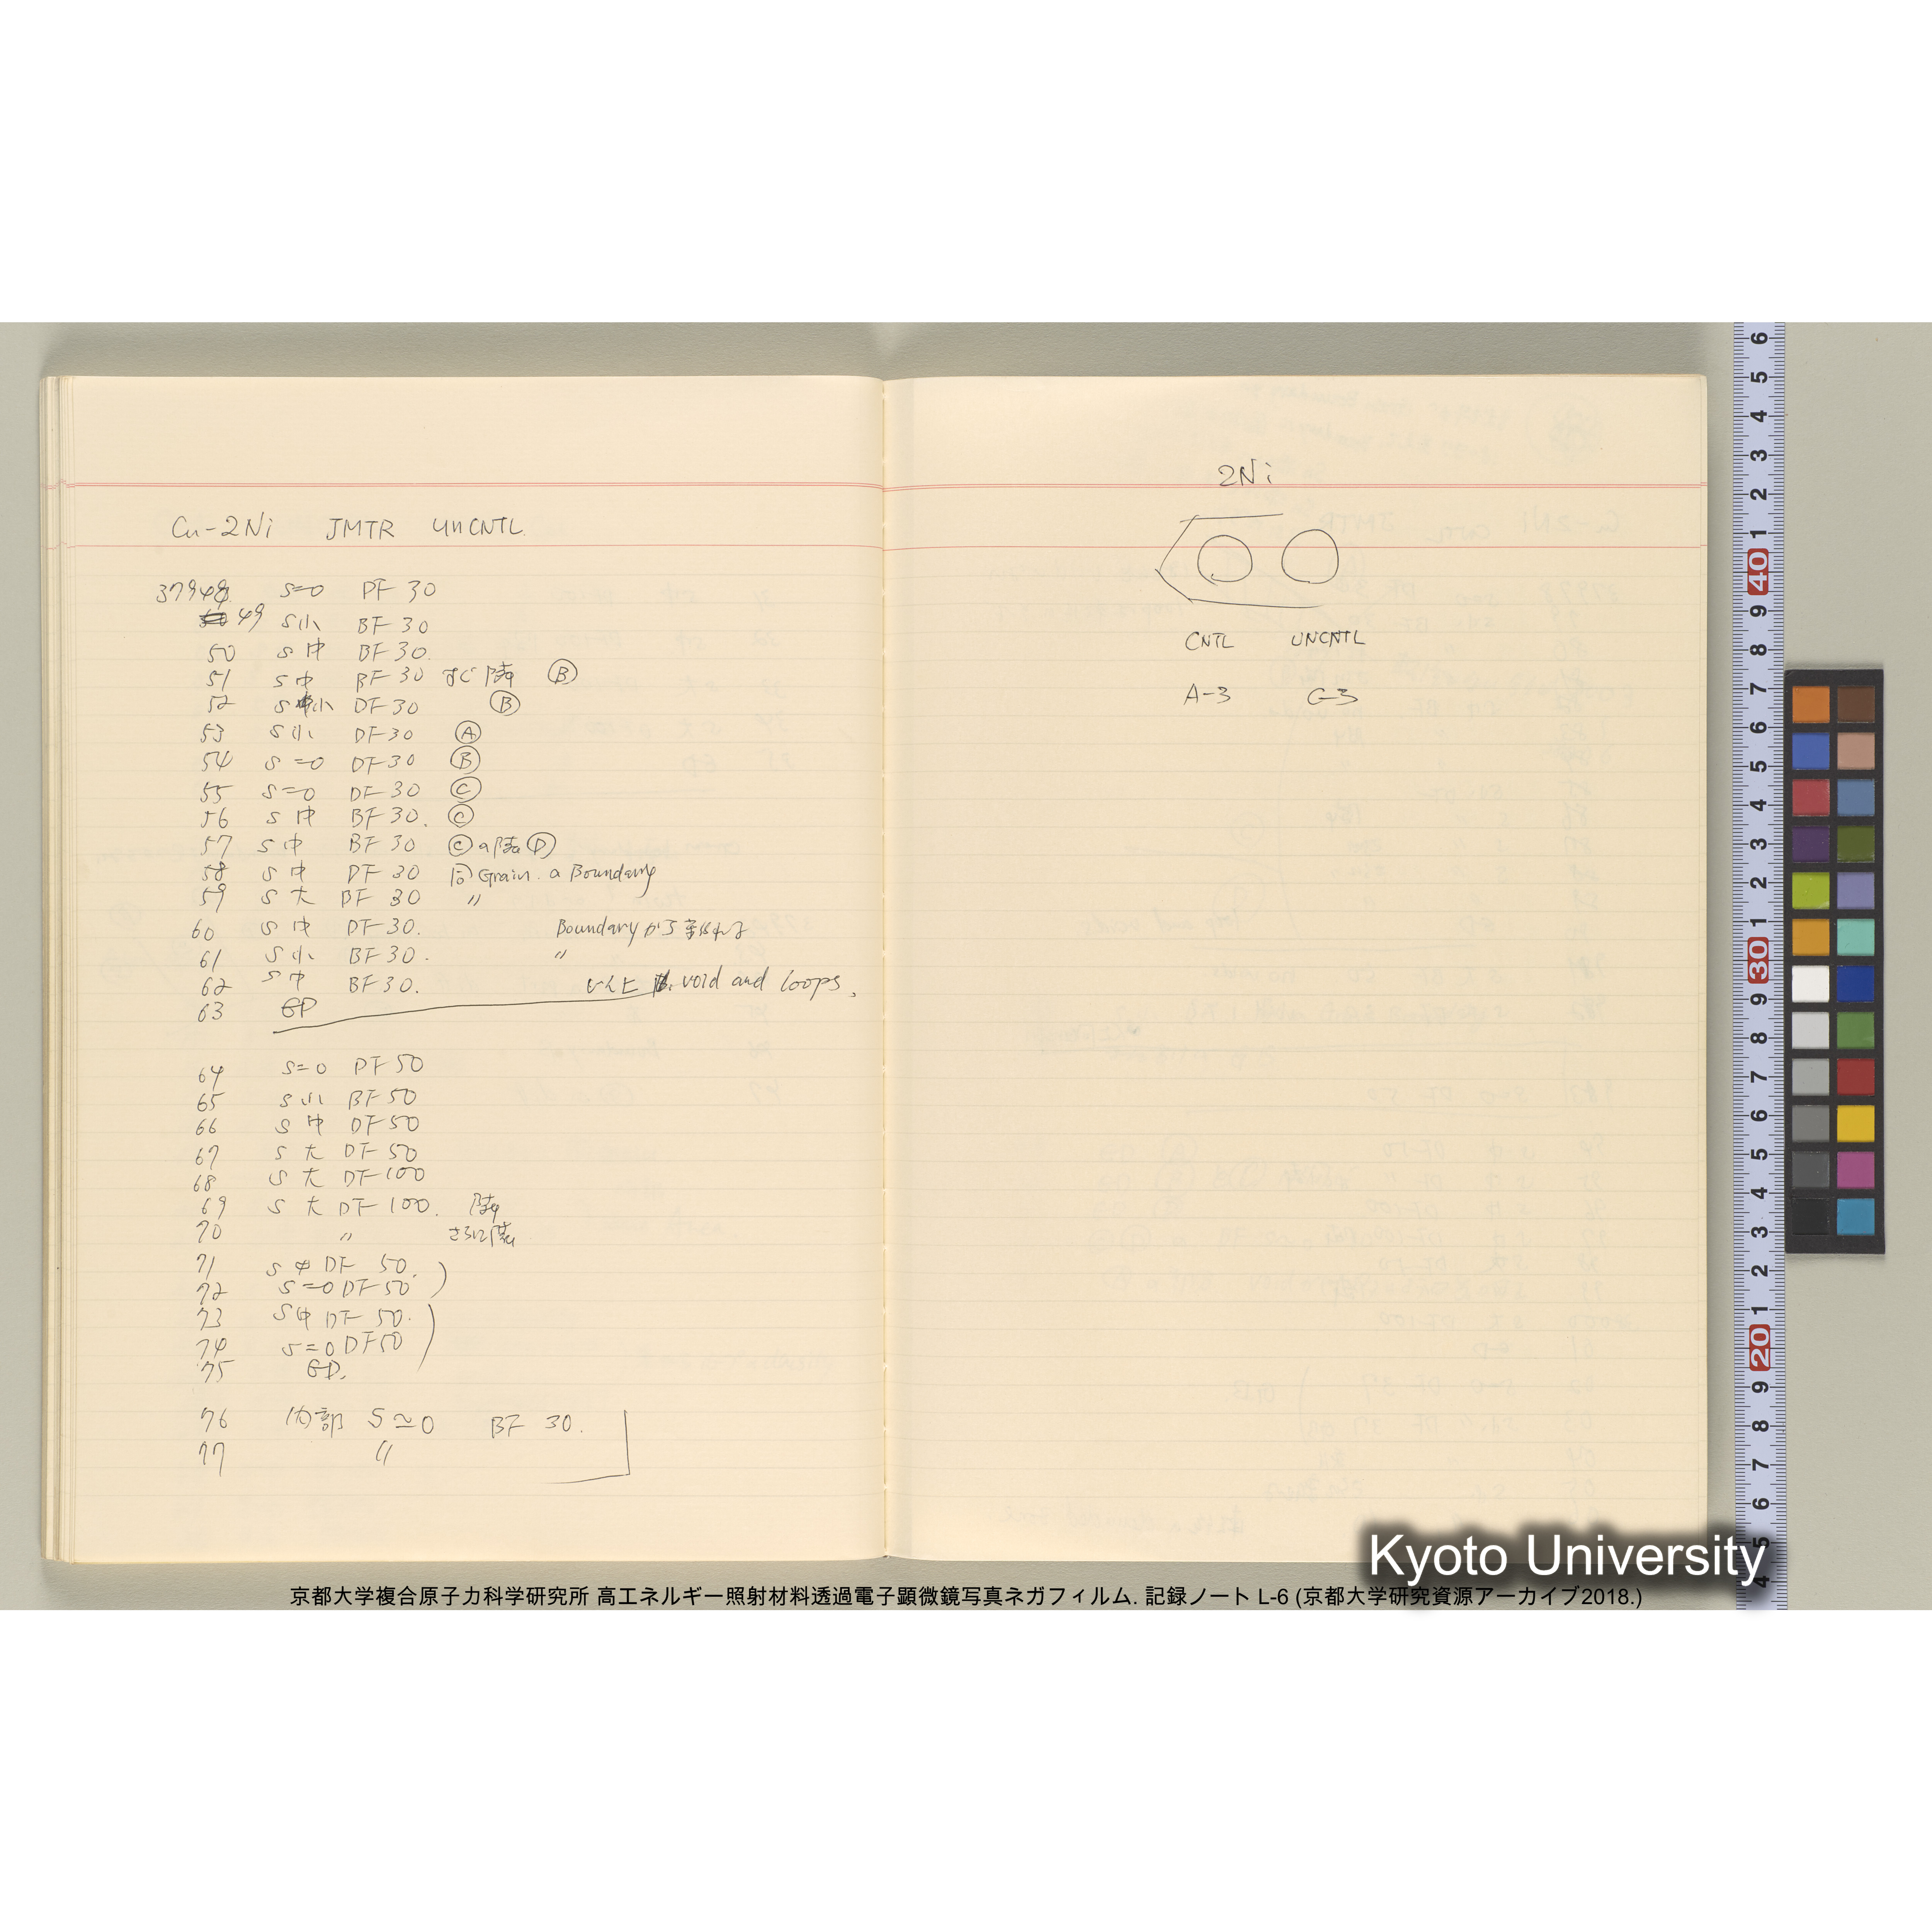 Cu-2Ni JMTR UNCNTL
37948 S=0 DF 30
49 S小 BF 30
50 S中 BF 30.
51 S中 BF 30 すぐ隣 Ⓑ
52 S小 DF 30 Ⓑ
53 S小 DF 30 Ⓐ
54 S=0 DF 30 Ⓑ
55 S=0 DF 30 Ⓒ
56 S中 BF 30. Ⓒ
57 S中 BF 30 Ⓒの隣 Ⓓ
58 S中 DF 30 同 Grain の Boundary
59 S大 BF 30 〃
60 S中 DF 30. Boundary から
61 S小 BF 30. 〃
62 S中 BF 30. void and loops.
63 ED
64 S=0 DF 50
65 S小 BF 50
66 S中 DF 50
67 S大 DF 50
68 S大 DF 100
69 S大 DF 100. 隣
70 〃 さらに隣
71 S中 DF 50.
72 S=0 DF 50
73 S中 DF 50.
74 S=0 DF 50
75 ED.
76 内部 S≃0 BF 30.
77 〃
2Ni
CNTL UNCNTL
A-3 G-3
Kyoto University
京都大学複合原子力科学研究所 高エネルギー照射材料透過電子顕微鏡写真ネガフィルム. 記録ノート L-6 (京都大学研究資源アーカイブ2018.)